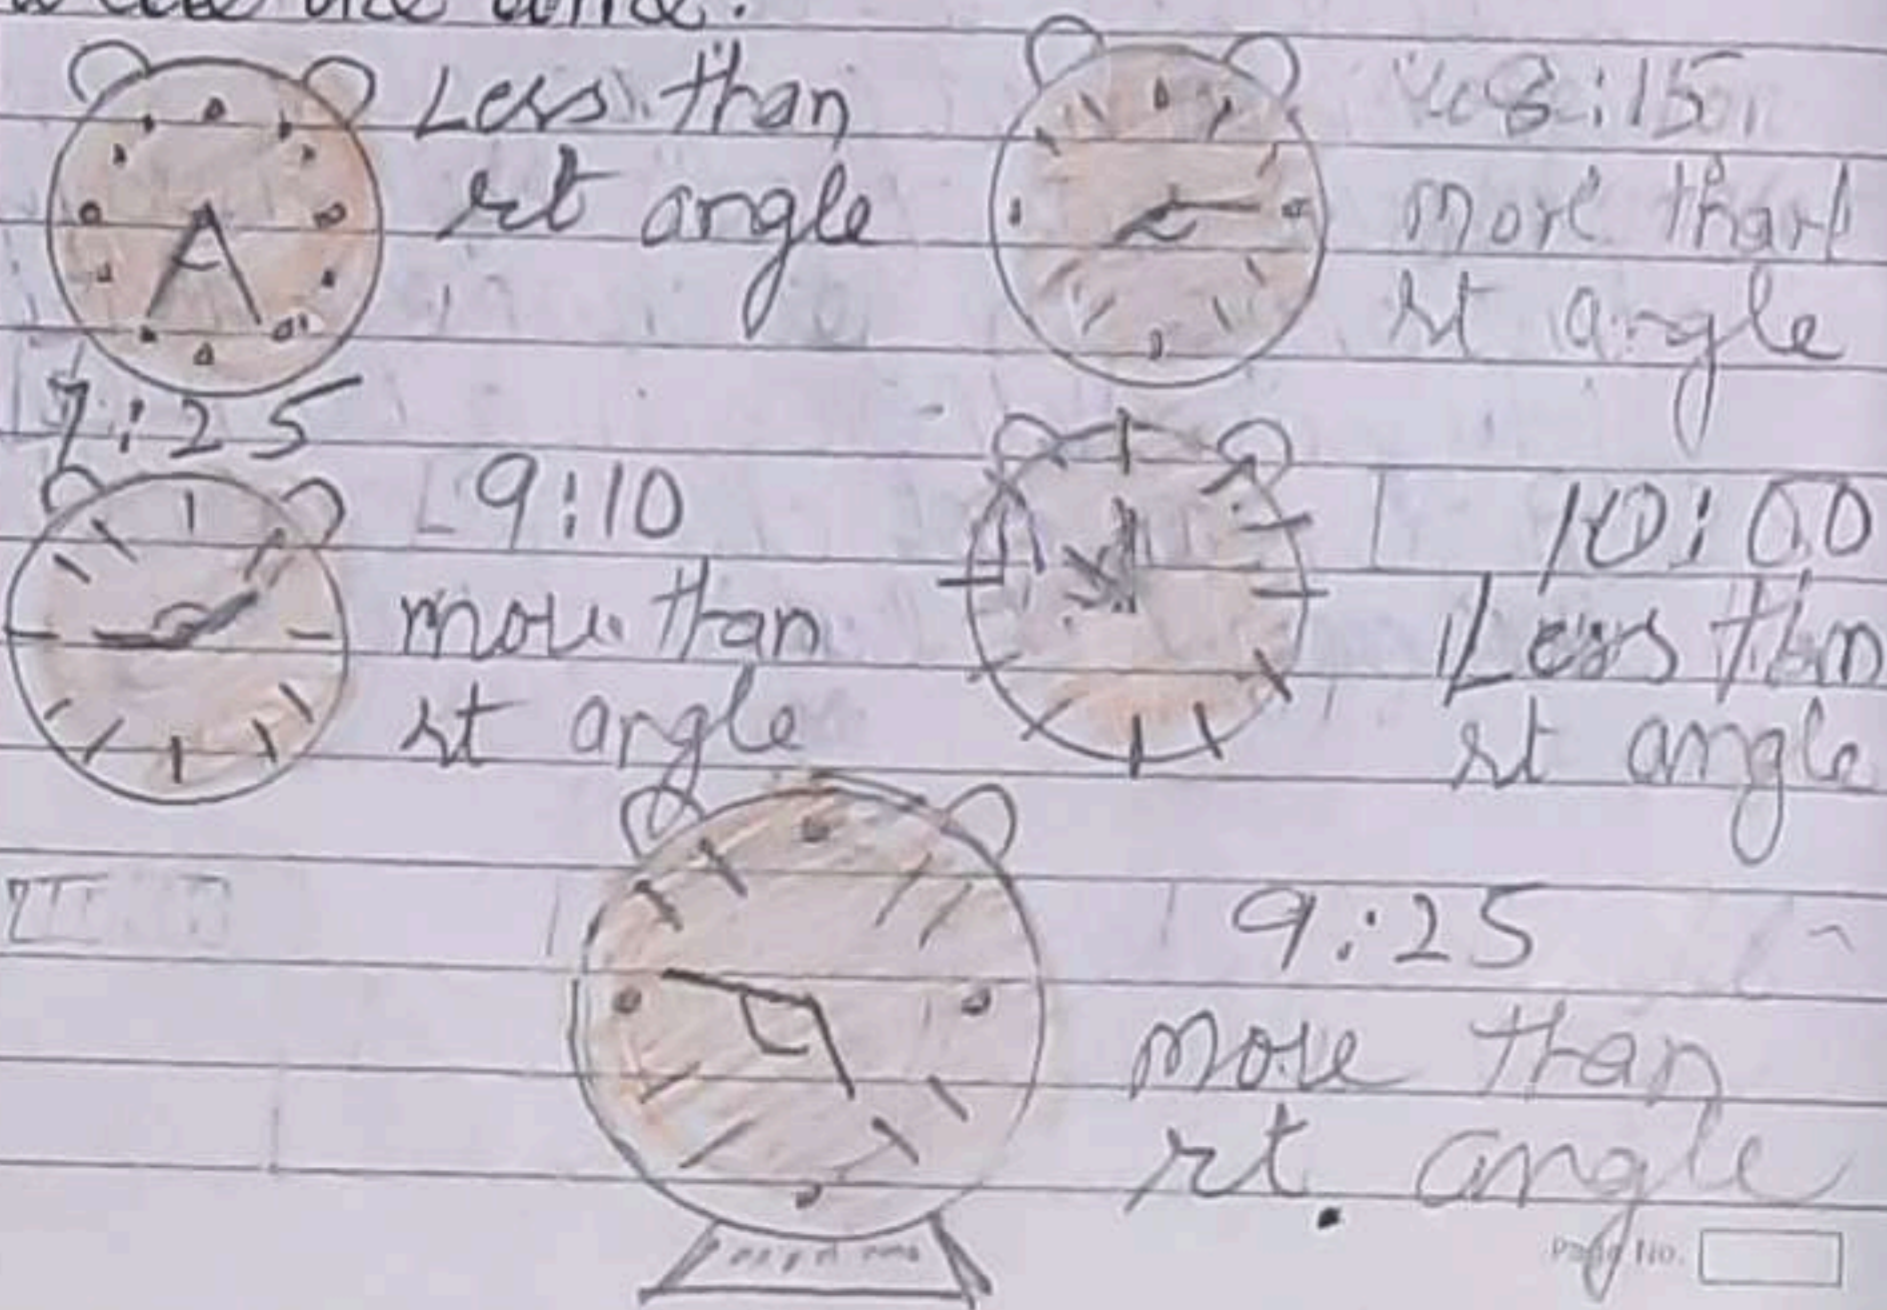 the time.
Less than
rt angle
7:25
8:15
more than
rt angle
9:10
more than
rt angle
10:00
Less than
rt angle
9:25
more than
rt. angle
Page No.